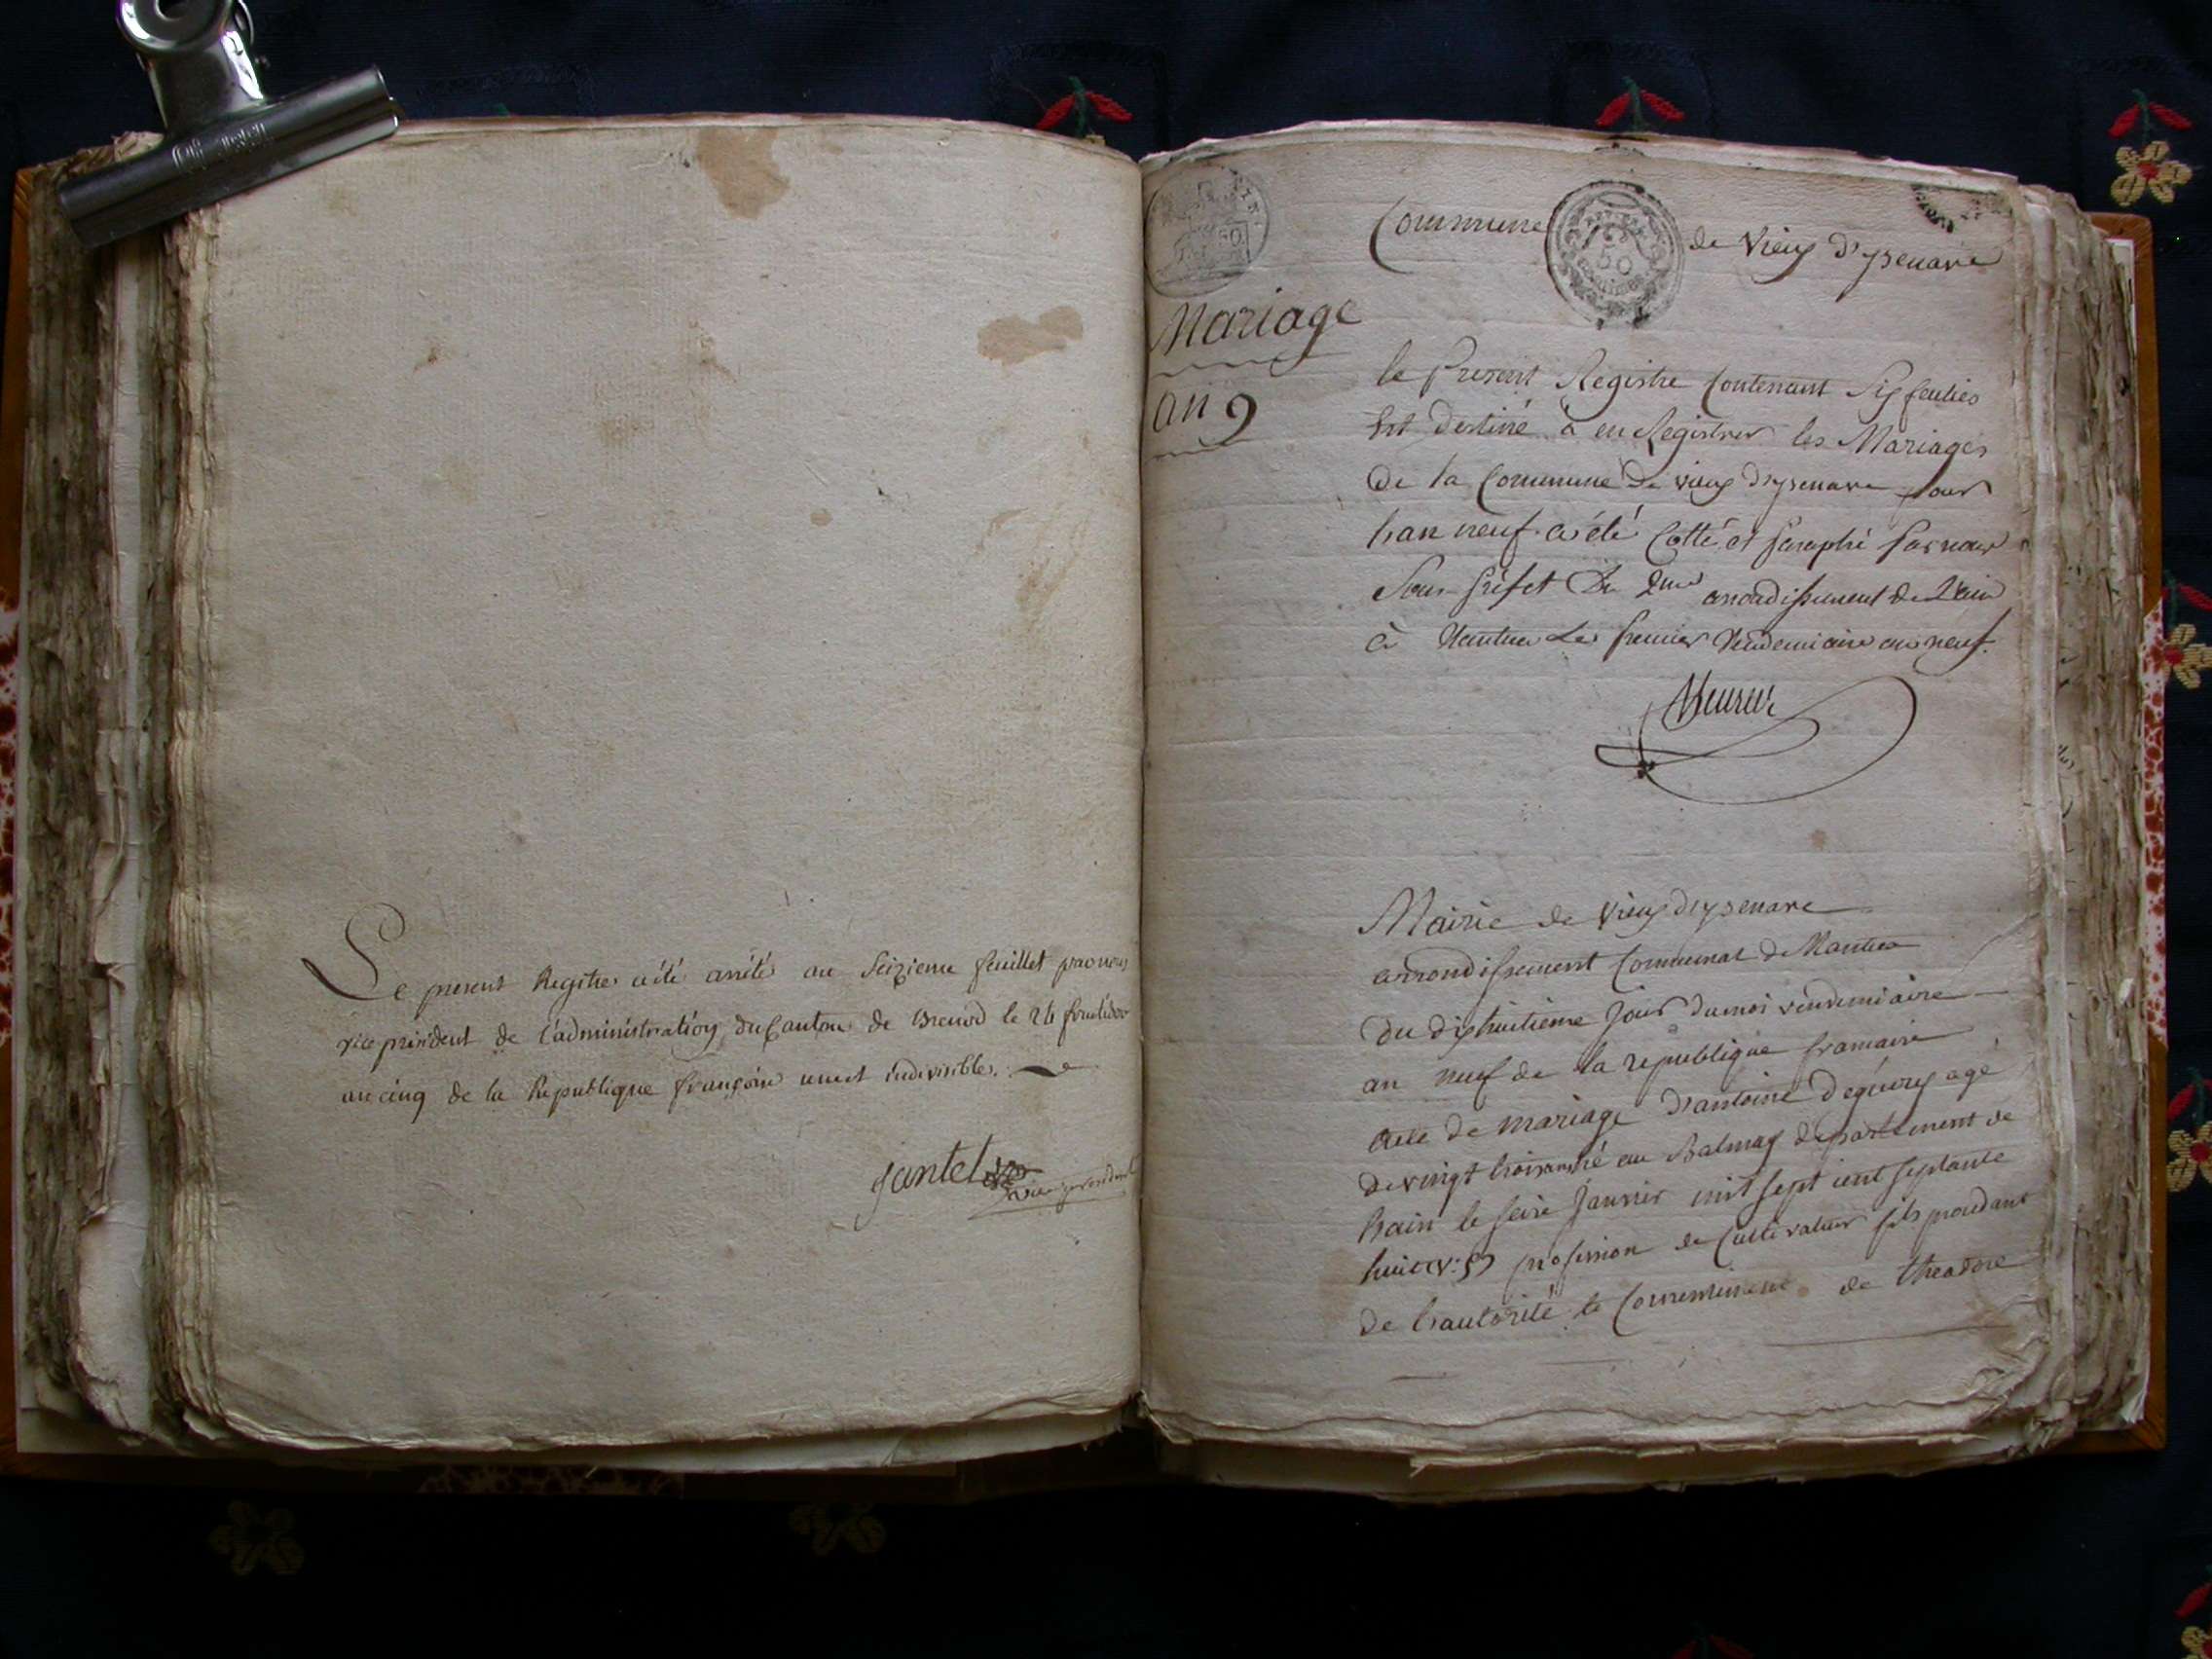 Le present Registre a été arrêté au Seizieme feuillet par nous
vice president de l'administration du Canton de Brenod le 24 fructidor
an cinq de la Republique françoise une et indivisible.
Jantet
vice president
Mariage
an 9
Commune de Vieux d'ysenave
50
le Present Registre Contenant Six feulies
Est destiné a en Registrer les Mariages
De la Commune De vieux d'ysenave pour
lan neuf a été Cotté et Paraphé Par nous
Sous Préfet Du 2me arrondissement de L'ain
à Nantua Le Premier Vendemiaire an neuf.
Mairie de vieux d'ysenave
arrondissement Communal de Nantua
Du dixhuitieme jour du moi vendemiaire
an neuf de la republique francaise
acte de mariage d'antoine Deguerry agé
de vingt trois ans né au Balmay departement de
l'ain le seize Janvier mil sept cent septante
huit v: st profession de Cultivateur fils
de l'autorité le de theodore